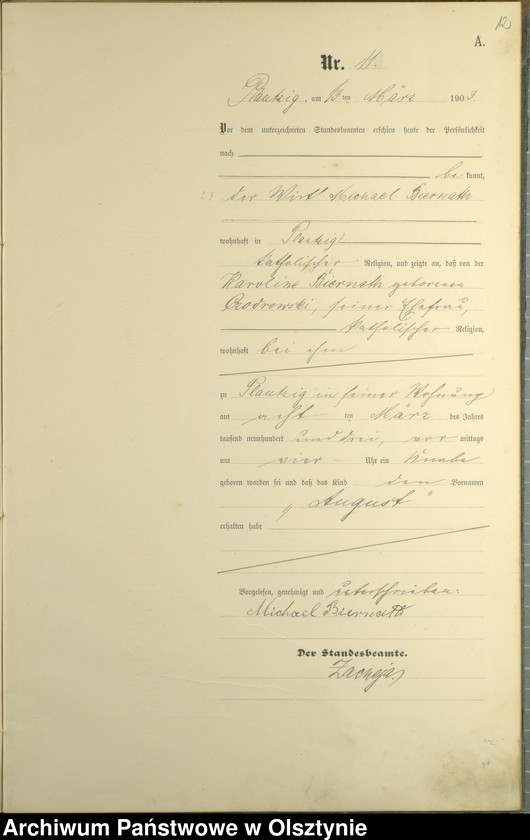 12
A.
Nr. 11.
Plautzig, am ten März 1903.
Vor dem unterzeichneten Standesbeamten erschien heute der Persönlichkeit
nach
be kannt,
der Wirt Michael Biernath
wohnhaft in Plautzig
katholischer Religion, und zeigte an, daß von der
Karoline Biernath geborenen
seiner Ehefrau,
katholischer Religion,
wohnhaft bei ihm
zu Plautzig in seiner Wohnung
am acht ten März des Jahres
tausend neunhundert und drei, vor mittags
um vier Uhr ein Knabe
geboren worden sei und daß das Kind den Vornamen
„August“
erhalten habe
Vorgelesen, genehmigt und unterschrieben:
Michael Biernath
Der Standesbeamte.
Archiwum Państwowe w Olsztynie